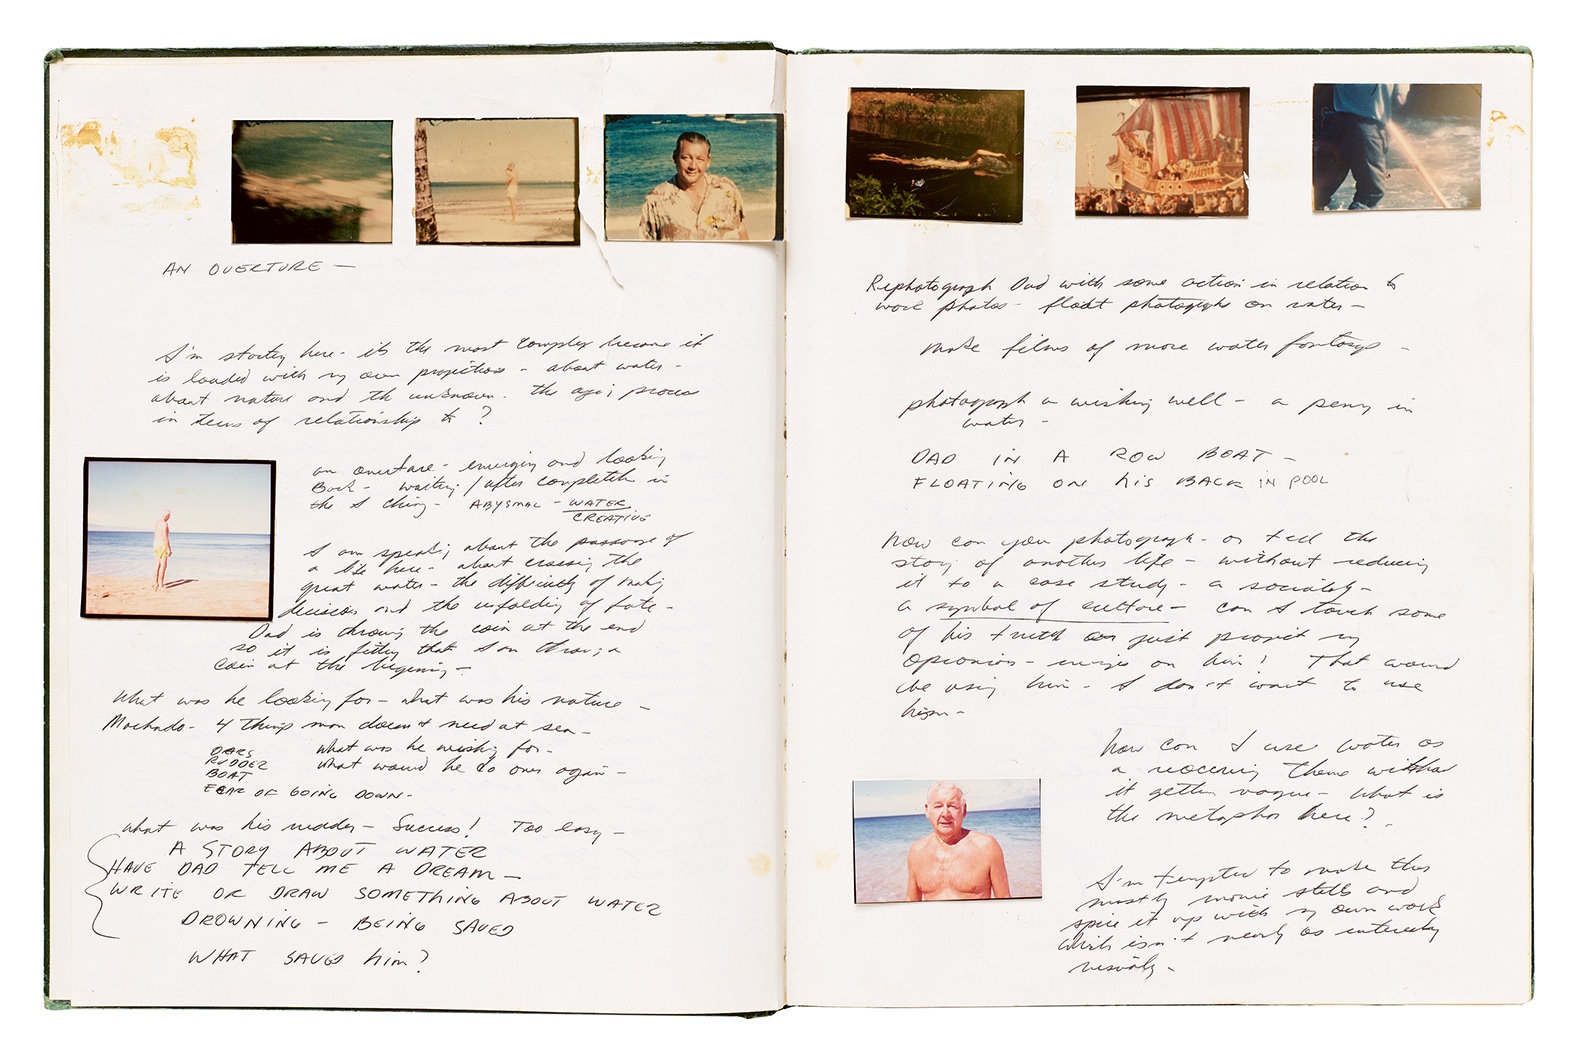 AN OVERTURE —
I'm starting here - it's the most complex because it
is loaded with my own projections - about water -
about nature and the unknown. the aging process
in terms of relationship to ?
an overture - emerging and looking
Back - waiting / after completion in
the I Ching - ABYSMAL - WATER
CREATIVE
I am speaking about the passage of
a life here - about crossing the
great water - the difficulty of making
decisions and the unfolding of fate -
Dad is throwing the coin at the end
so it is fitting that I am throwing a
coin at the beginning -
What was he looking for - what was his nature -
Machado - 4 things man doesn't need at sea -
OARS what was he wishing for -
RUDDER what would he do over again -
BOAT
FEAR OF GOING DOWN -
what was his rudder - Success! Too easy -
A STORY ABOUT WATER
HAVE DAD TELL ME A DREAM -
WRITE OR DRAW SOMETHING ABOUT WATER
DROWNING - BEING SAVED
WHAT SAVED him?
Rephotograph Dad with some action in relation to
work photos - float photographs on water -
make films of more water footage -
photograph a wishing well - a penny in
water -
DAD IN A ROW BOAT -
FLOATING ON his BACK IN POOL
how can you photograph - or tell the
story of another life - without reducing
it to a case study - a
a symbol of culture - can I touch some
of his truth or just project my
opinions - on him! That would
be using him - I don't want to use
him -
how can I use water as
a reoccurring theme without
it getting vague - what is
the metaphor here?
I'm tempted to make this
mostly movie stills and
spice it up with my own work
which isn't nearly as interesting
visually -